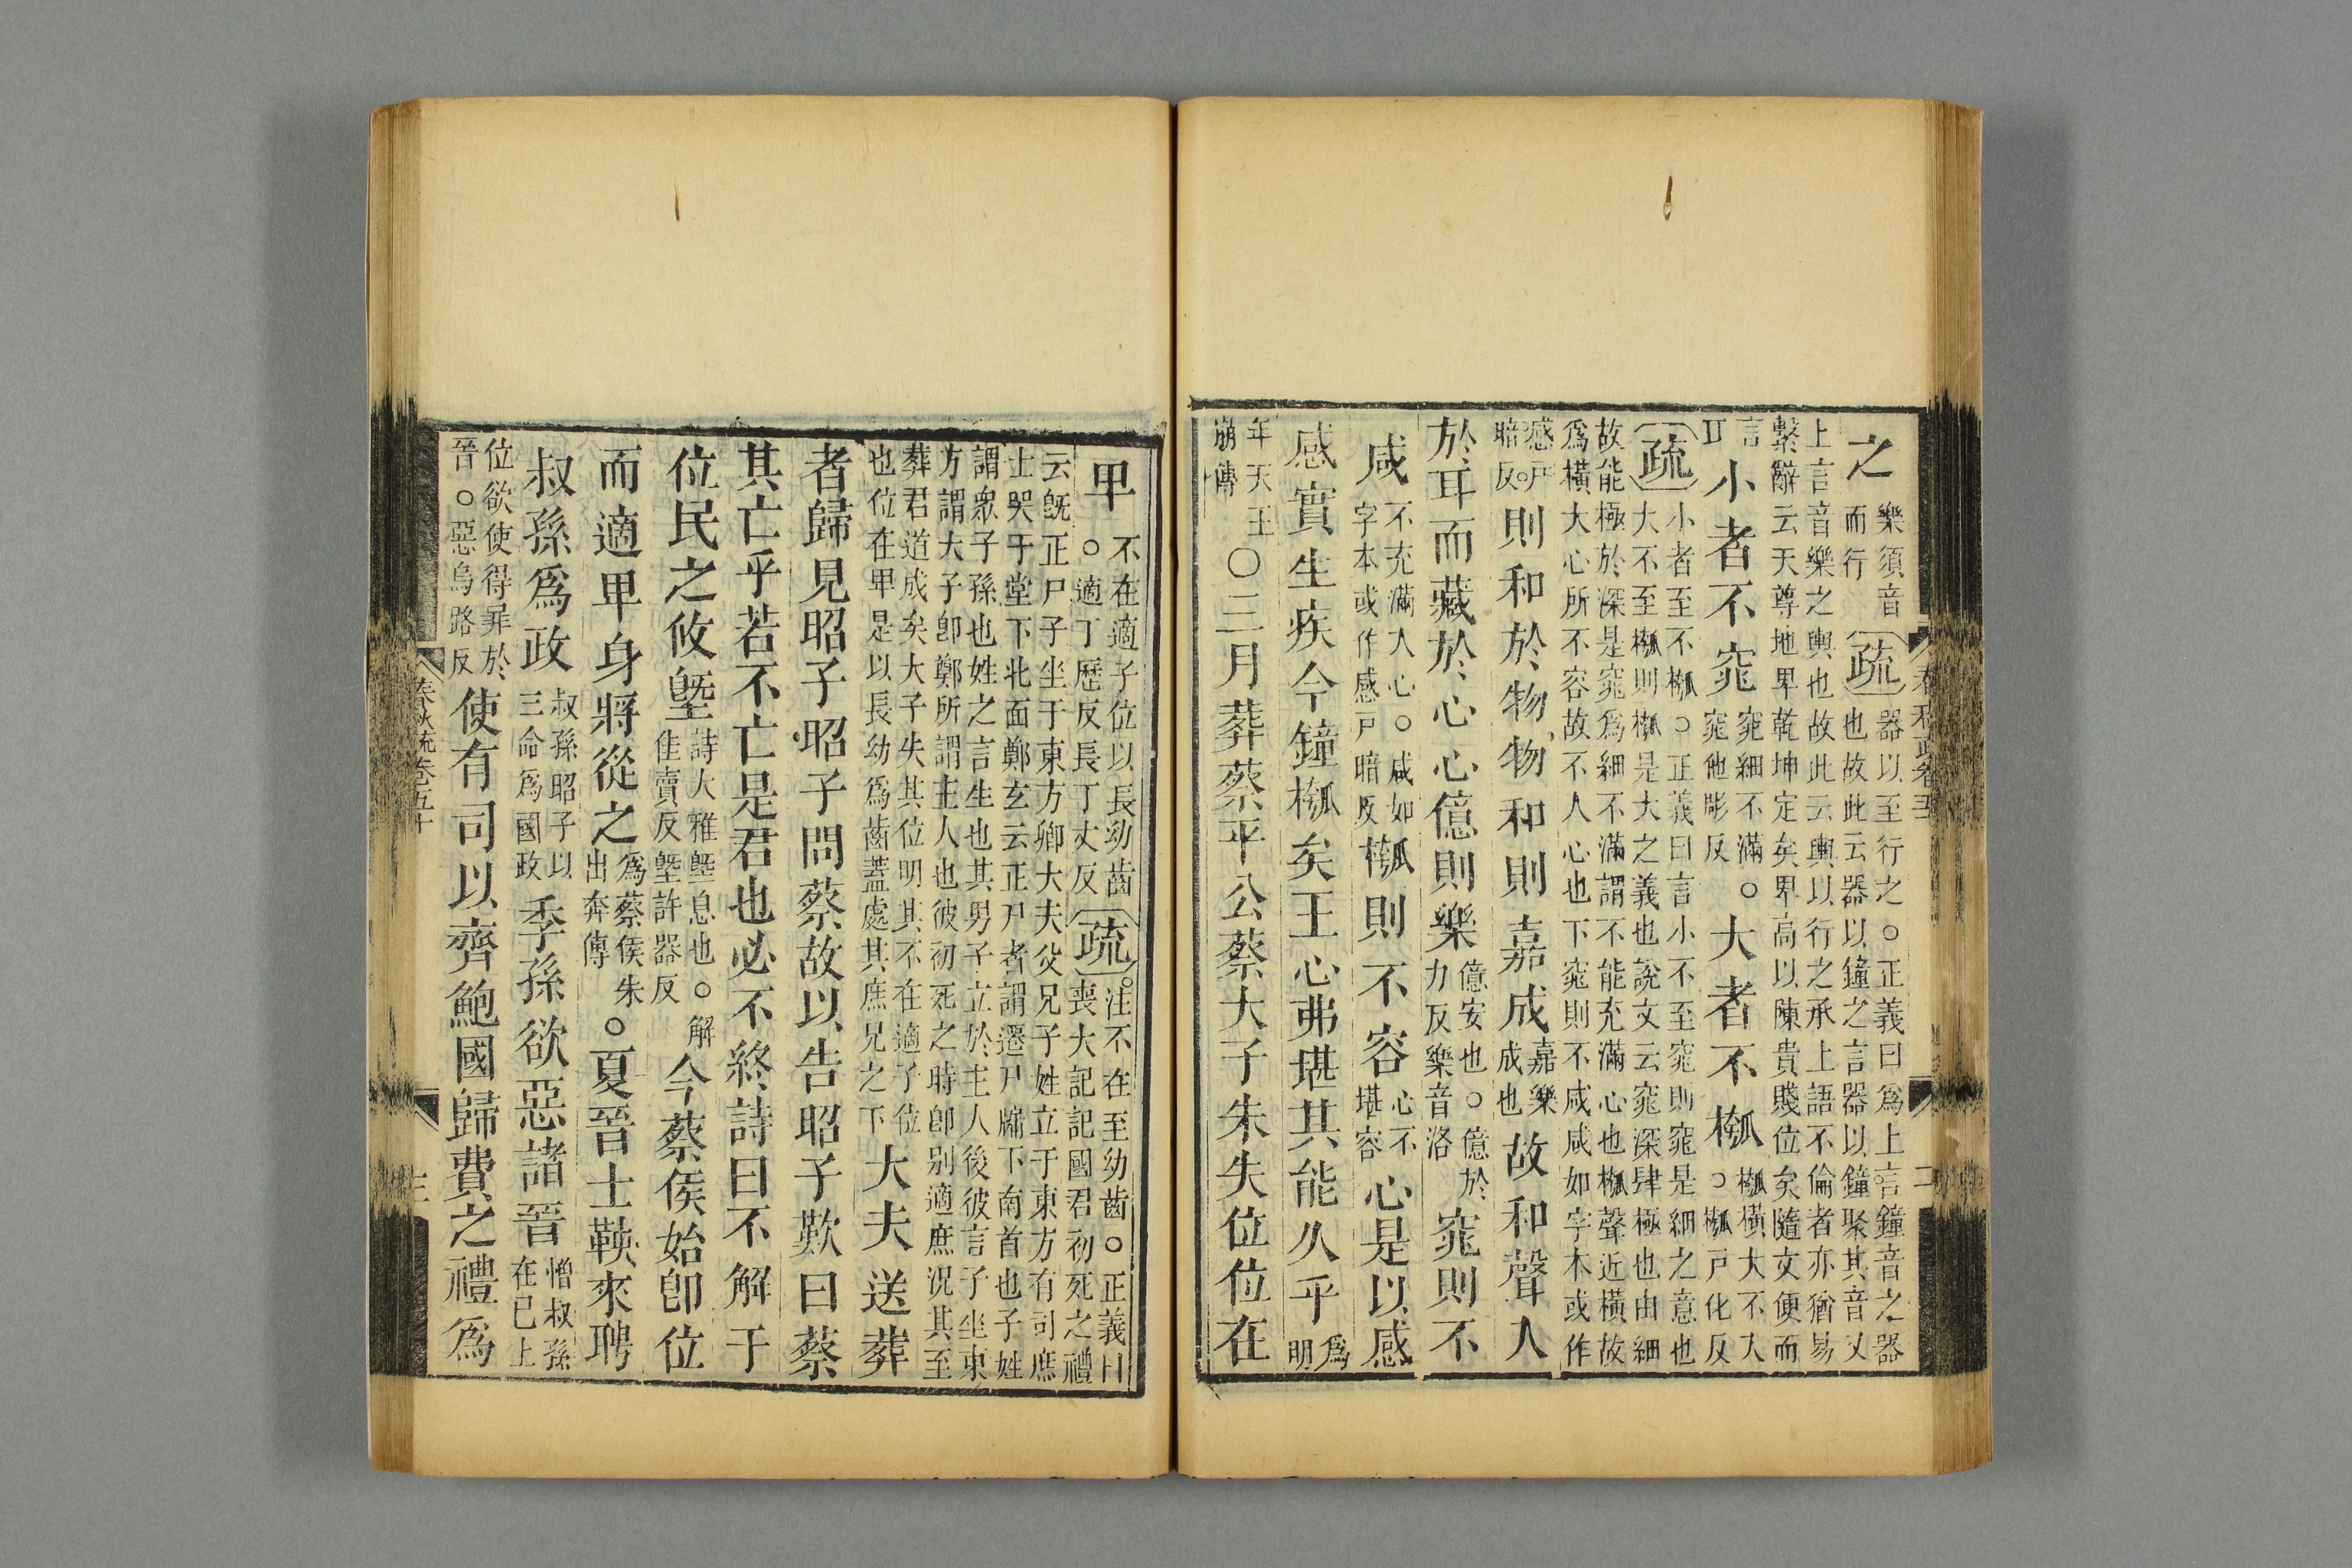 之樂須音而行疏器以至行之○正義曰爲上言鐘音之器也故此云器以鐘之言器以鐘聚其音又
上言音樂之輿也故此云輿以行之承上語不倫者亦猶易
繫辭云天尊地卑乾坤定矣卑高以陳貴賤位矣隨文便而
言耳小者不窕窕細不滿○窕他彫反大者不槬槬橫大不入○槬戶化反
疏小者至不槬○正義曰言小不至窕則窕是細之意也大不至槬則槬是大之義也說文云窕深肆極也由細
故能極於深是窕爲細不滿謂不能充滿心也槬聲近橫故
爲橫大心所不容故不入心也下窕則不咸咸如字本或作
感戶暗反則和於物物和則嘉成嘉樂成也故和聲入
於耳而藏於心心億則樂億安也○億於力反樂音洛窕則不
咸不充滿人心○咸如字本或作感戶暗反槬則不容心不堪容心是以感
感實生疾今鐘槬矣王心弗堪其能久乎爲明
年天王崩傳○三月葬蔡平公蔡大子朱失位位在
春秋疏卷五十
二
卑不在適子位以長幼齒○適丁歷反長丁丈反疏注不在至幼齒○正義曰喪大記記國君初死之禮
云旣正尸子坐于東方卿大夫父兄子姓立于東方有司庶
士哭于堂下北面鄭玄云正尸者謂遷尸牖下南首也子姓
謂衆子孫也姓之言生也其男子立於主人後彼言子坐東
方謂大子卽鄭所謂主人也彼初死之時卽别適庶況其至
葬君道成矣大子失其位明其不在適子位
也位在卑是以長幼爲齒蓋處其庶兄之下大夫送葬
者歸見昭子昭子問蔡故以告昭子歎曰蔡
其亡乎若不亡是君也必不終詩曰不解于
位民之攸塈詩大雅塈息也○解佳賣反塈許器反今蔡侯始卽位
而適卑身將從之爲蔡侯朱出奔傳○夏晉士鞅來聘
叔孫爲政叔孫昭子以三命爲國政季孫欲惡諸晉憎叔孫在已上
位欲使得罪於晉○惡烏路反使有司以齊鮑國歸費之禮爲
春秋疏卷五十
三